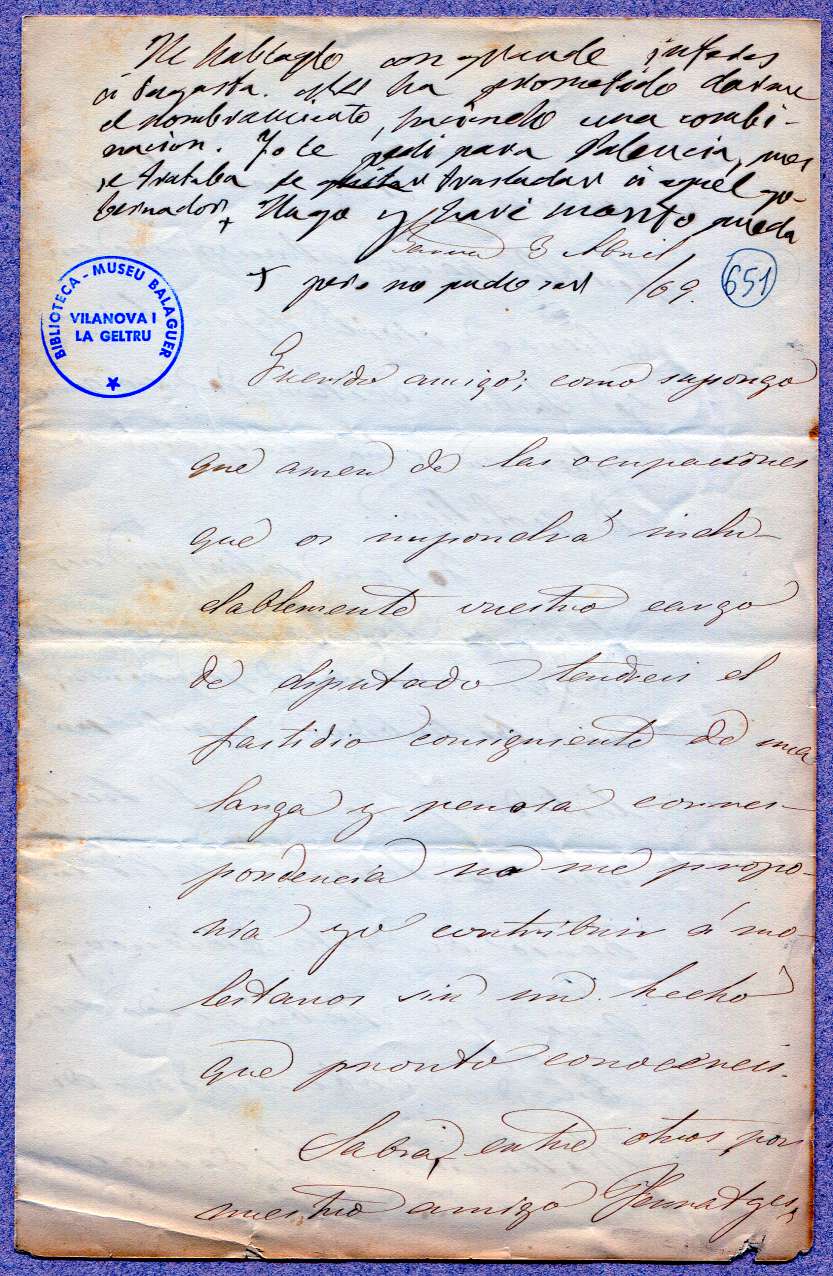 He hablado con grande interes
á Sagasta. Me ha prometido darme
el nombramiento, haciendo una combi-
nacion. Yo le pedi para Valencia, pues
se trataba de quitar trasladar á aquel go-
bernador + Hago y haré cuanto pueda
+ pero no pudo ser
3 Abril
/69.
651
BIBLIOTECA - MUSEU BALAGUER
VILANOVA I
LA GELTRU
Querido amigo; como supongo
que amen de las ocupaciones
que os impondrá indu-
dablemente vuestro cargo
de diputado tendreis el
fastidio consiguiente de una
larga y penosa corres-
pondencia no me propo-
nia yo contribuir á mo-
lestaros sin un hecho
que pronto conocereis.
Sabia, entre otros por
nuestro amigo